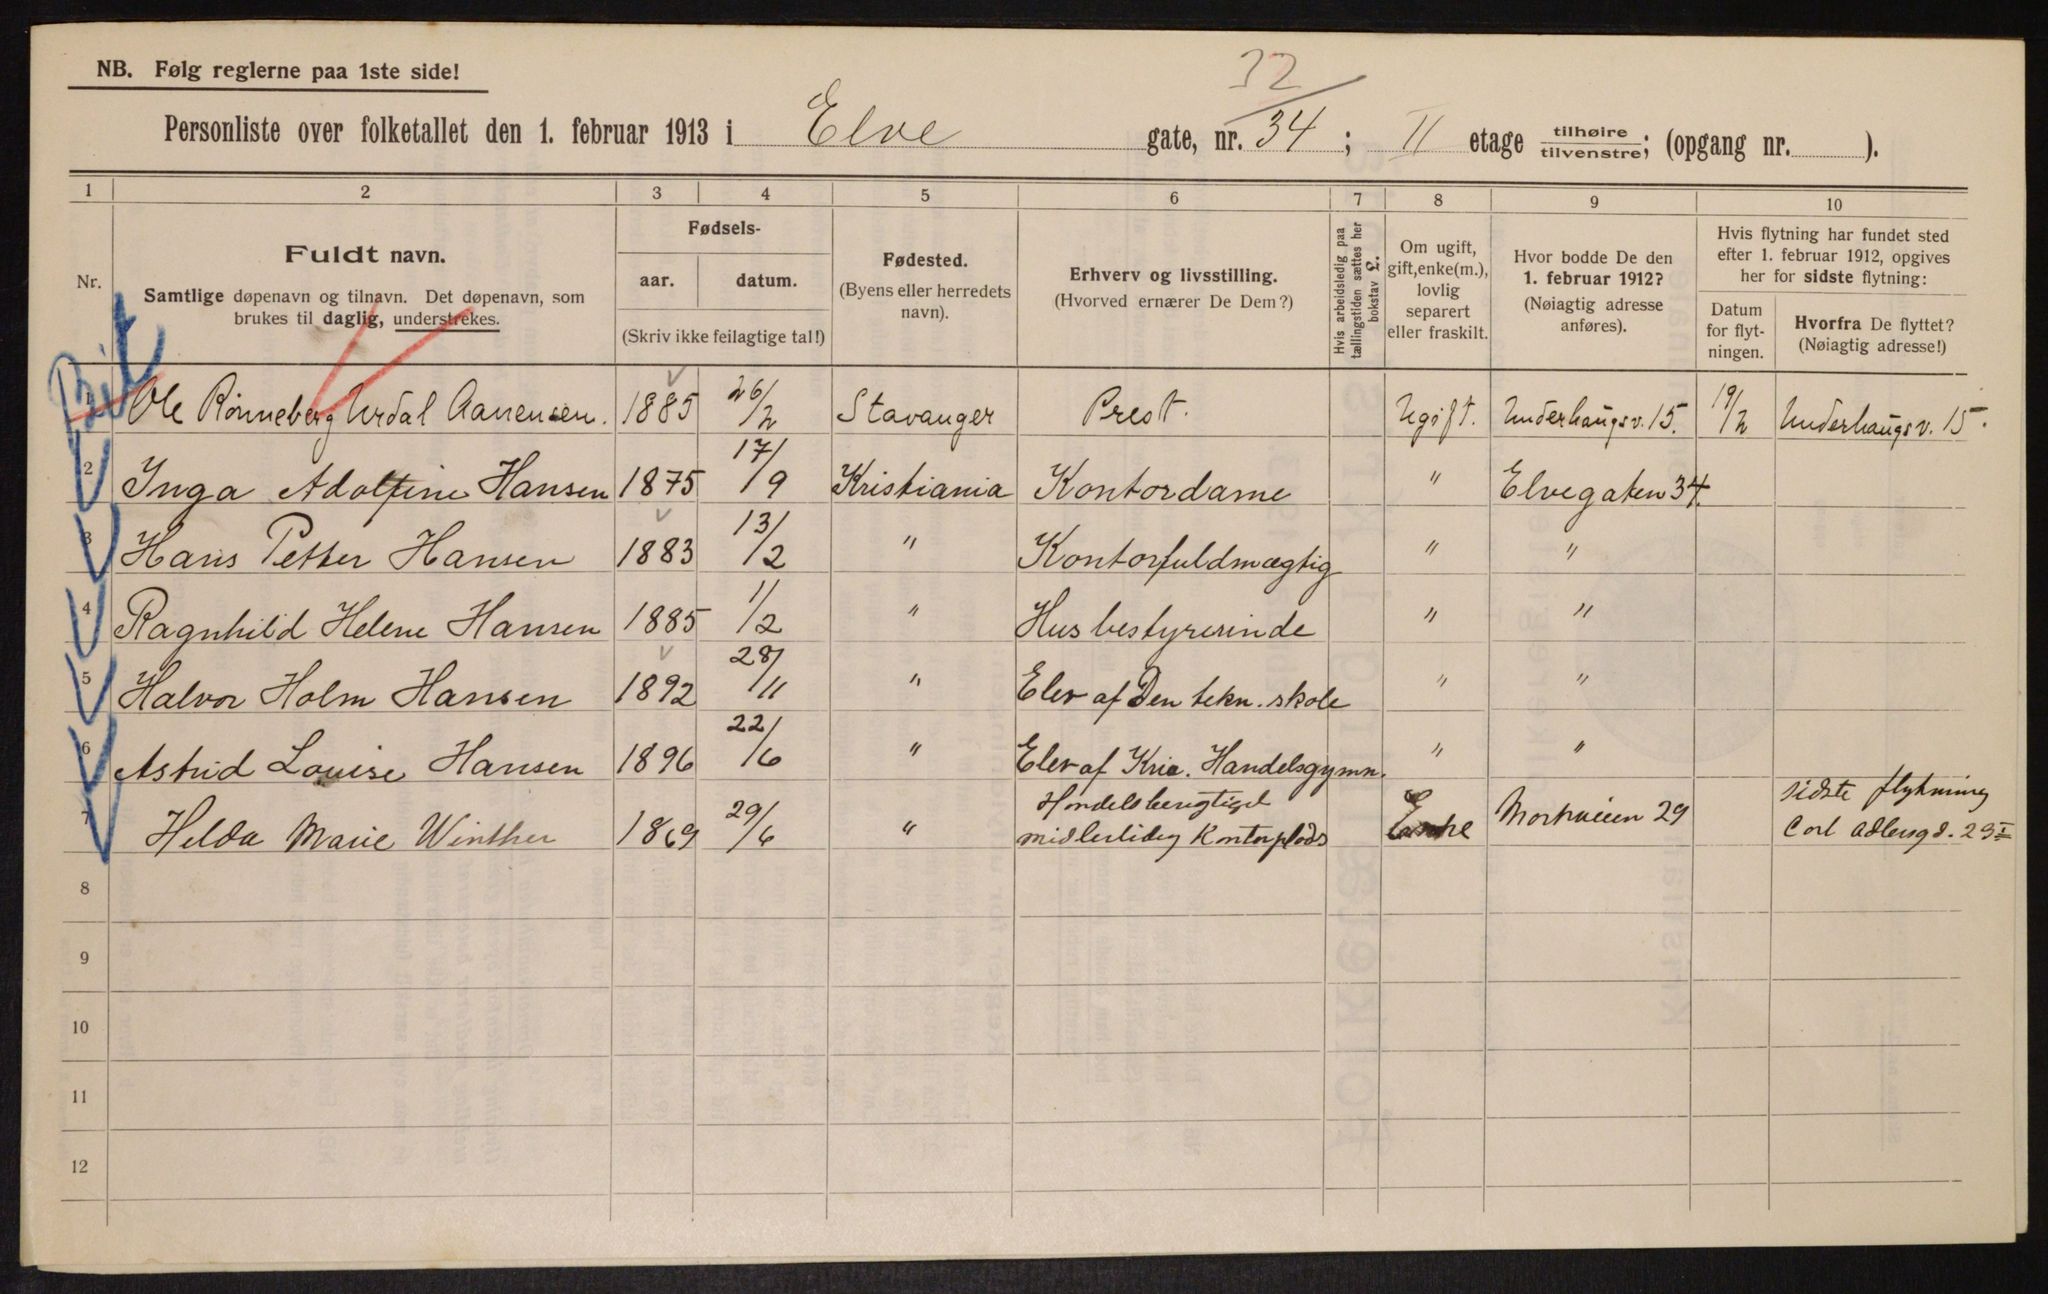 NB. Følg reglerne paa 1ste side!
32
Personliste over folketallet den 1. februar 1913 i Elve gate, nr. 34; II etage tilhøire tilvenstre; (opgang nr. ).
1 2 3 4 5 6 7 8 9 10
Nr.
Fuldt navn.
Samtlige døpenavn og tilnavn. Det døpenavn, som
brukes til daglig, understrekes.
Fødsels-
aar. datum.
(Skriv ikke feilagtige tal!)
Fødested.
(Byens eller herredets
navn).
Erhverv og livsstilling.
(Hvorved ernærer De Dem?)
Hvis arbeidsledig paa
tællingstiden sættes her
bokstav L.
Om ugift,
gift, enke(m.),
lovlig
separert
eller fraskilt.
Hvor bodde De den
1. februar 1912?
(Nøiagtig adresse
anføres).
Hvis flytning har fundet sted
efter 1. februar 1912, opgives
her for sidste flytning:
Datum
for flyt-
ningen.
Hvorfra De flyttet?
(Nøiagtig adresse!)
1 Ole Rönneberg Urdal Aanensen. 1885 26/2 Stavanger Prest. Ugift. Underhaugsv. 15. 19/2 Underhaugsv. 15.
2 Inga Adolfine Hansen 1875 17/9 Kristiania Kontordame " Elvegaten 34.
3 Hans Petter Hansen 1883 13/2 " Kontorfuldmægtig " "
4 Ragnhild Helene Hansen 1885 1/2 " Husbestyrerinde " "
5 Halvor Holm Hansen 1892 28/11 " Elev af Den tekn. skole " "
6 Astrid Louise Hansen 1896 22/6 " Elev af Kria. Handelsgymn. " "
7 Helda Marie Winther 1869 29/6 " Handelsberegtiget
midlertidig Kontorplads Enke 29 sidste flytning
Carl Adlersgd. 29 I
8
9
10
11
12